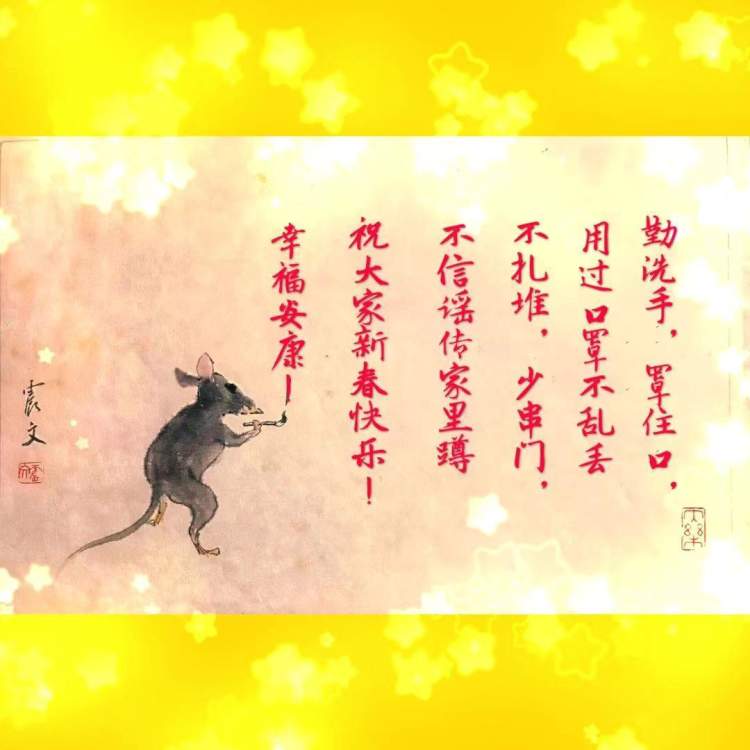 勤洗手，罩住口，
用过口罩不乱丢
不扎堆，少串门，
不信谣传家里蹲
祝大家新春快乐！
幸福安康！
震文